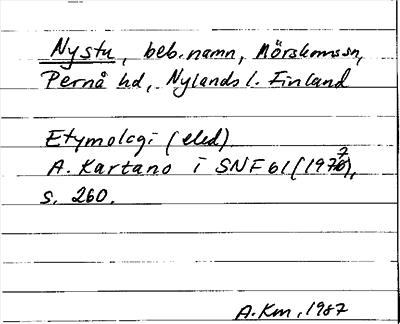 Nystu, beb.namn, Mörskoms sn,
Pernå hd, Nylands l. Finland
Etymologi (eled)
A. Kartano i SNF 61 (1977),
s. 260.
A.Km, 1987